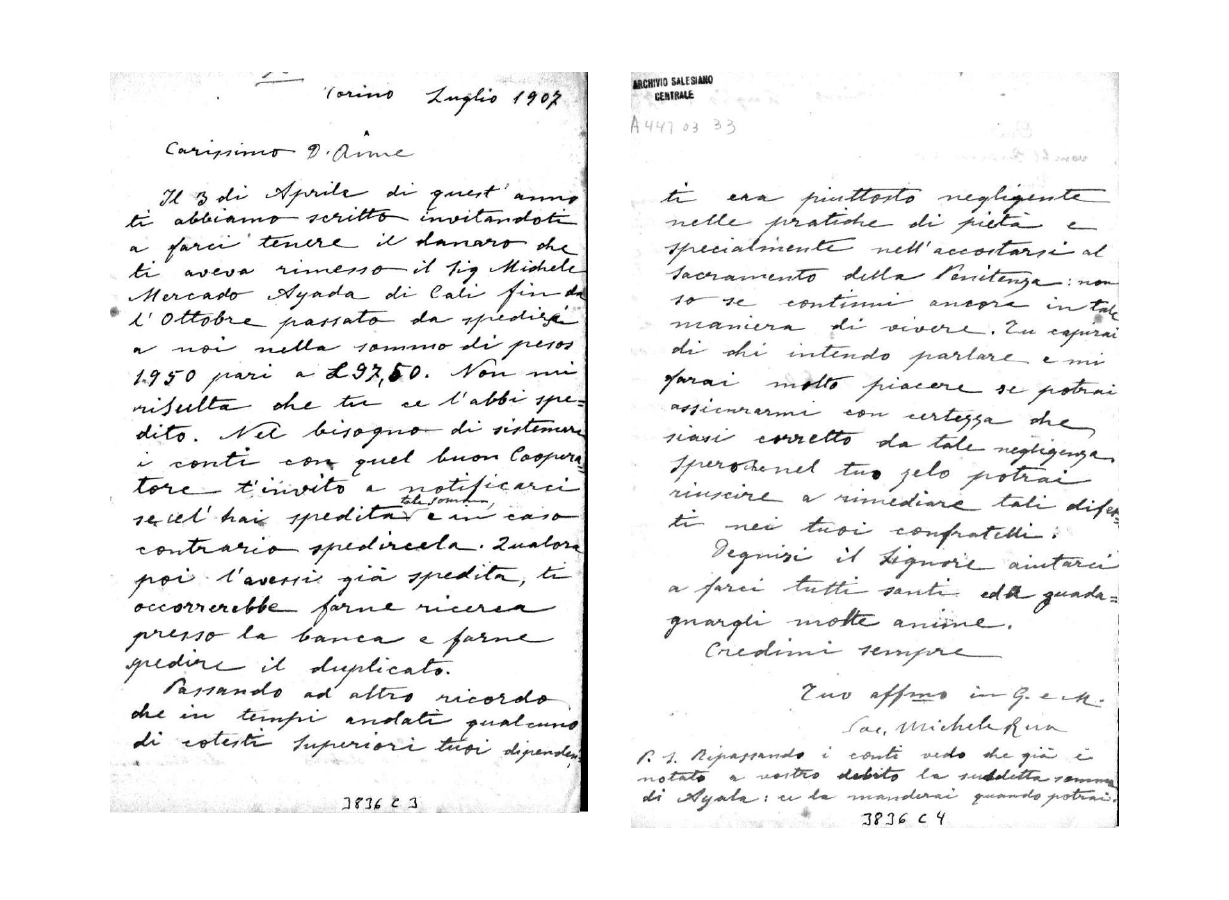 Torino Luglio 1907
Carissimo D. Aime
Il 3 di Aprile di quest' anno
ti abbiamo scritto invitandoti
a farci tenere il danaro che
ti aveva rimesso il Sig Michele
Mercado Ayada di Cali fin da
l'Ottobre passato da spedirsi
a noi nella somma di pesos
1.950 pari a £ 97,50. Non mi
risulta che tu ce l'abbi spe=
dito. Nel bisogno di sistemare
i conti con quel buon Coopera=
tore t'invito a notificarci
se cel' hai spedita tale somma, e in caso
contrario spedircela. Qualora
poi l'avessi già spedita, ti
occorrerebbe farne ricerca
presso la banca e farne
spedire il duplicato.
Passando ad altro ricordo
che in tempi andati qualcuno
di cotesti Superiori tuoi dipenden=
3836 C 3
ARCHIVIO SALESIANO
CENTRALE
A 447 03 33
ti era piuttosto negligente
nelle pratiche di pietà e
specialmente nell'accostarsi al
sacramento della Penitenza: non
so se continui ancora in tale
maniera di vivere. Tu capirai
di chi intendo parlare e mi
farai molto piacere se potrai
assicurarmi con certezza che
siasi corretto da tale negligenza.
Spero che nel tuo zelo potrai
riuscire a rimediare tali difet=
ti nei tuoi confratelli.
Degnisi il Signore aiutarci
a farci tutti santi ed a guada=
gnargli molte anime.
Credimi sempre
Tuo affmo in G. e M.
Sac. Michele Rua
P. S. Ripassando i conti vedo che già è
notato a vostro debito la suddetta somma
di Ayala: ce la manderai quando potrai.
3836 C 4